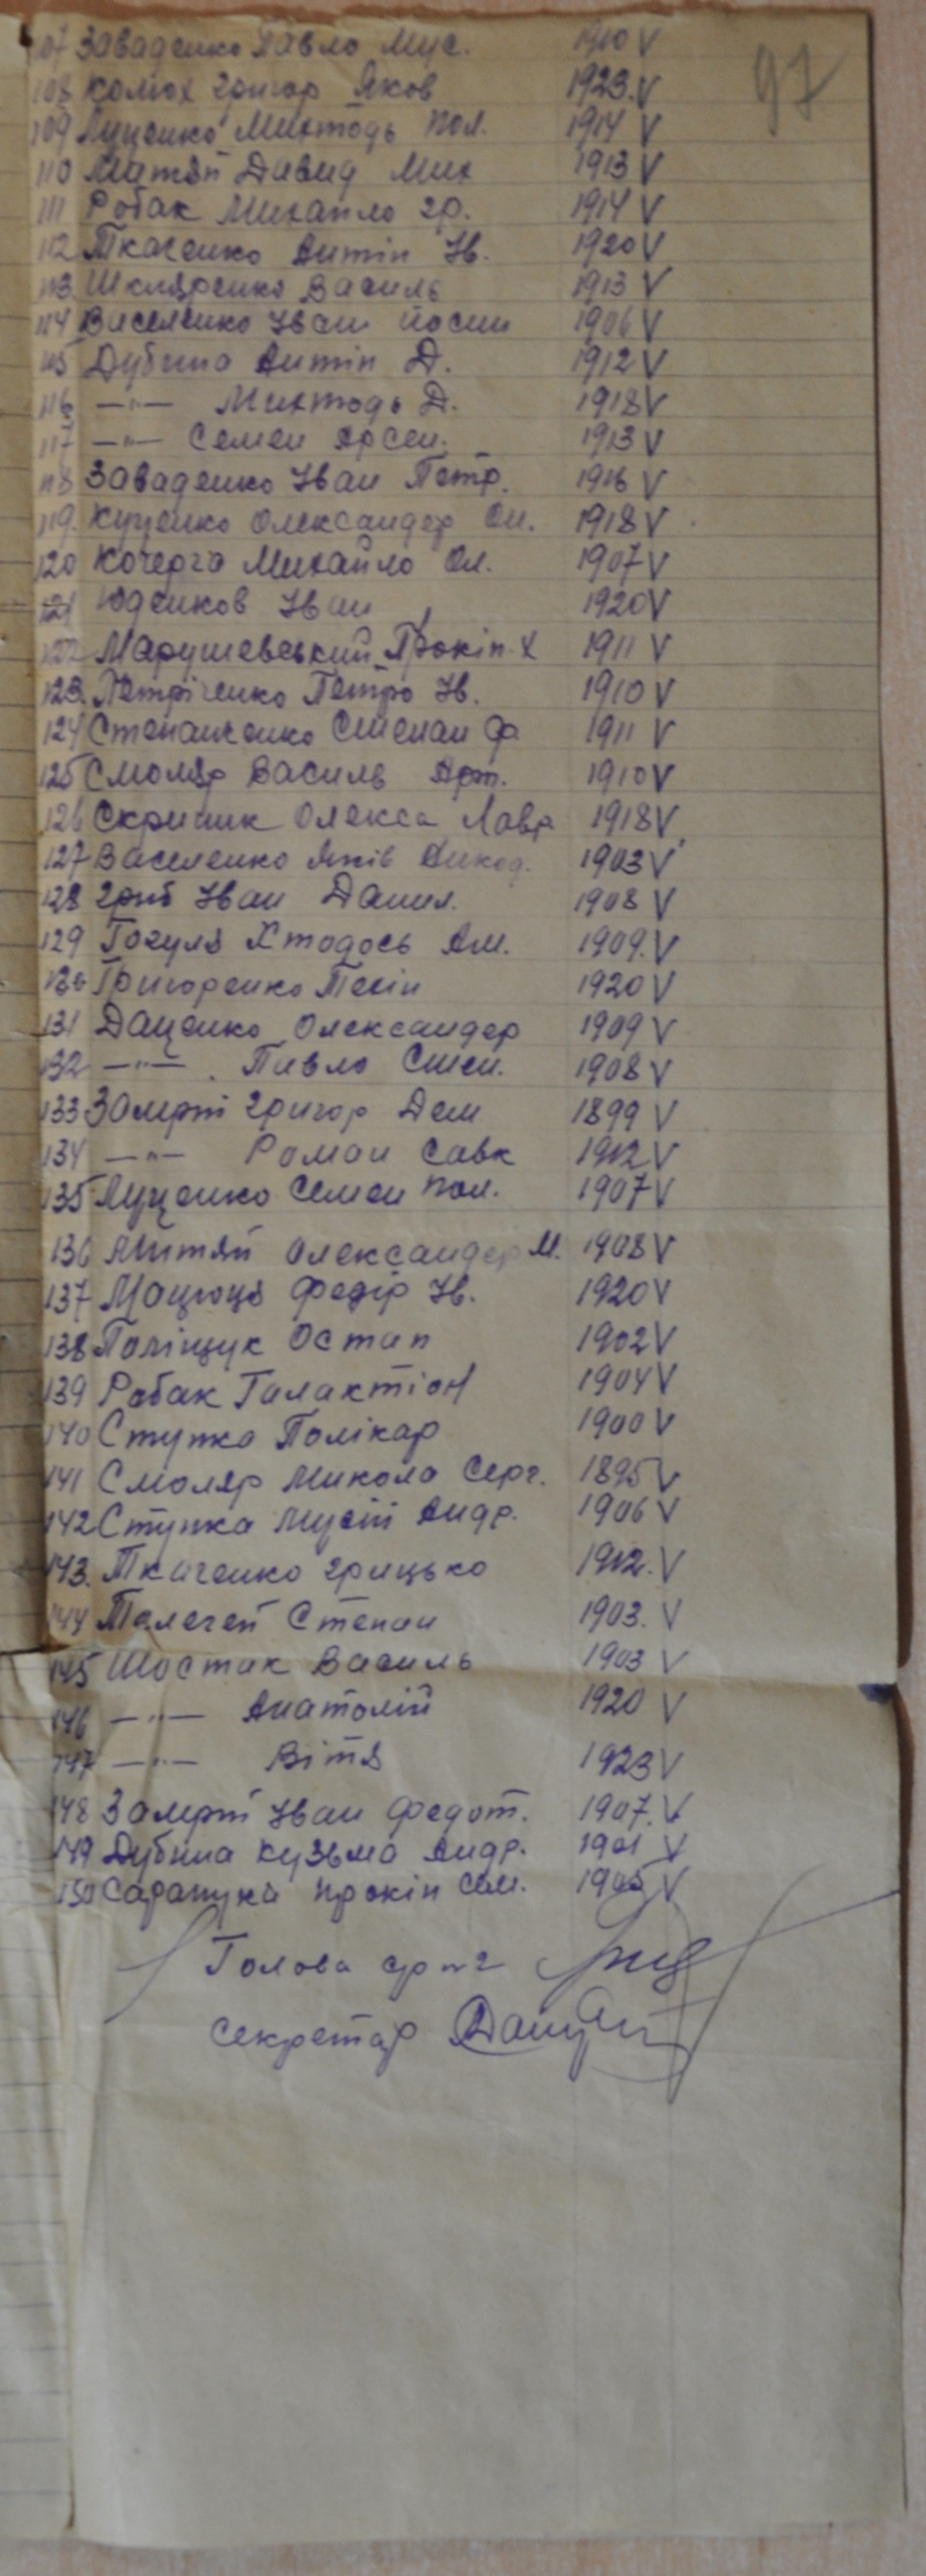 97
107 Заваденко Павло Мус. 1910 V
108 Колюх Григор Яков 1923. V
109 Луценко Михтодь Пол. 1914 V
110 Матяй Давид Мих 1913 V
111 Робак Михайло Гр. 1914 V
112 Ткаченко Антін Ів. 1920 V
113. Шкляренко Василь 1913 V
114 Василенко Іван Йосип 1906 V
115 Дубина Антін Д. 1912 V
116 —"— Михтодь Д. 1918 V
117 —"— Семен Арсен. 1913 V
118 Заваденко Іван Петр. 1916 V
119. Куценко Олександер Ол. 1918 V
120 Кочерга Михайло Ол. 1907 V
121 Юденков Іван 1920 V
122 Марушевський Прокіп Х 1911 V
123. Петріченко Петро Ів. 1910 V
124 Степанченко Степан Ф 1911 V
125 Смоляр Василь Арт. 1910 V
126 Скрипник Олекса Лавр 1918 V
127 Василенко Яків Никод. 1903 V
128 Гриб Іван Данил. 1908 V
129 Гогуля Хтодось Ам. 1909. V
130 Григоренко Текін 1920 V
131 Даценко Олександер 1909 V
132 —"— Павло Смен. 1908 V
133 Замрій Григор Дем 1899 V
134 —"— Роман Савк 1912 V
135 Луценко Семен Пол. 1907 V
136 Митяй Олександер М. 1908 V
137 Мацюця Федір Ів. 1920 V
138 Поліщук Остап 1902 V
139 Робак Галактіон 1904 V
140 Ступка Полікар 1900 V
141 Смоляр Микола Серг. 1895 V
142 Ступка Мусій Андр. 1906 V
143. Ткаченко Грицько 1912. V
144 Телегей Степан 1903. V
145 Шостак Василь 1903 V
146 —"— Анатолій 1920 V
147 —"— Вітя 1923 V
148 Замрій Іван Федот. 1907. V
149 Дубина Кузьма Андр. 1901 V
150 Сарапука Прокіп Сам. 1905 V
Голова
Секретар